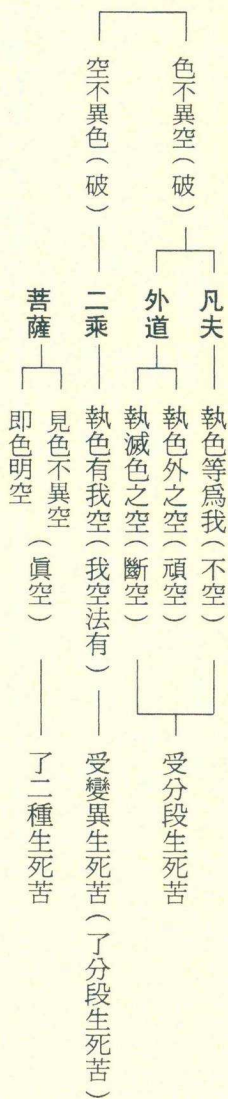 色不異空（破）
凡夫
執色等爲我（不空）
外道
執色外之空（頑空）
執滅色之空（斷空）
受分段生死苦
空不異色（破）
二乘
執色有我空（我空法有）
受變異生死苦（了分段生死苦）
菩薩
見色不異空
即色明空
（眞空）
了二種生死苦